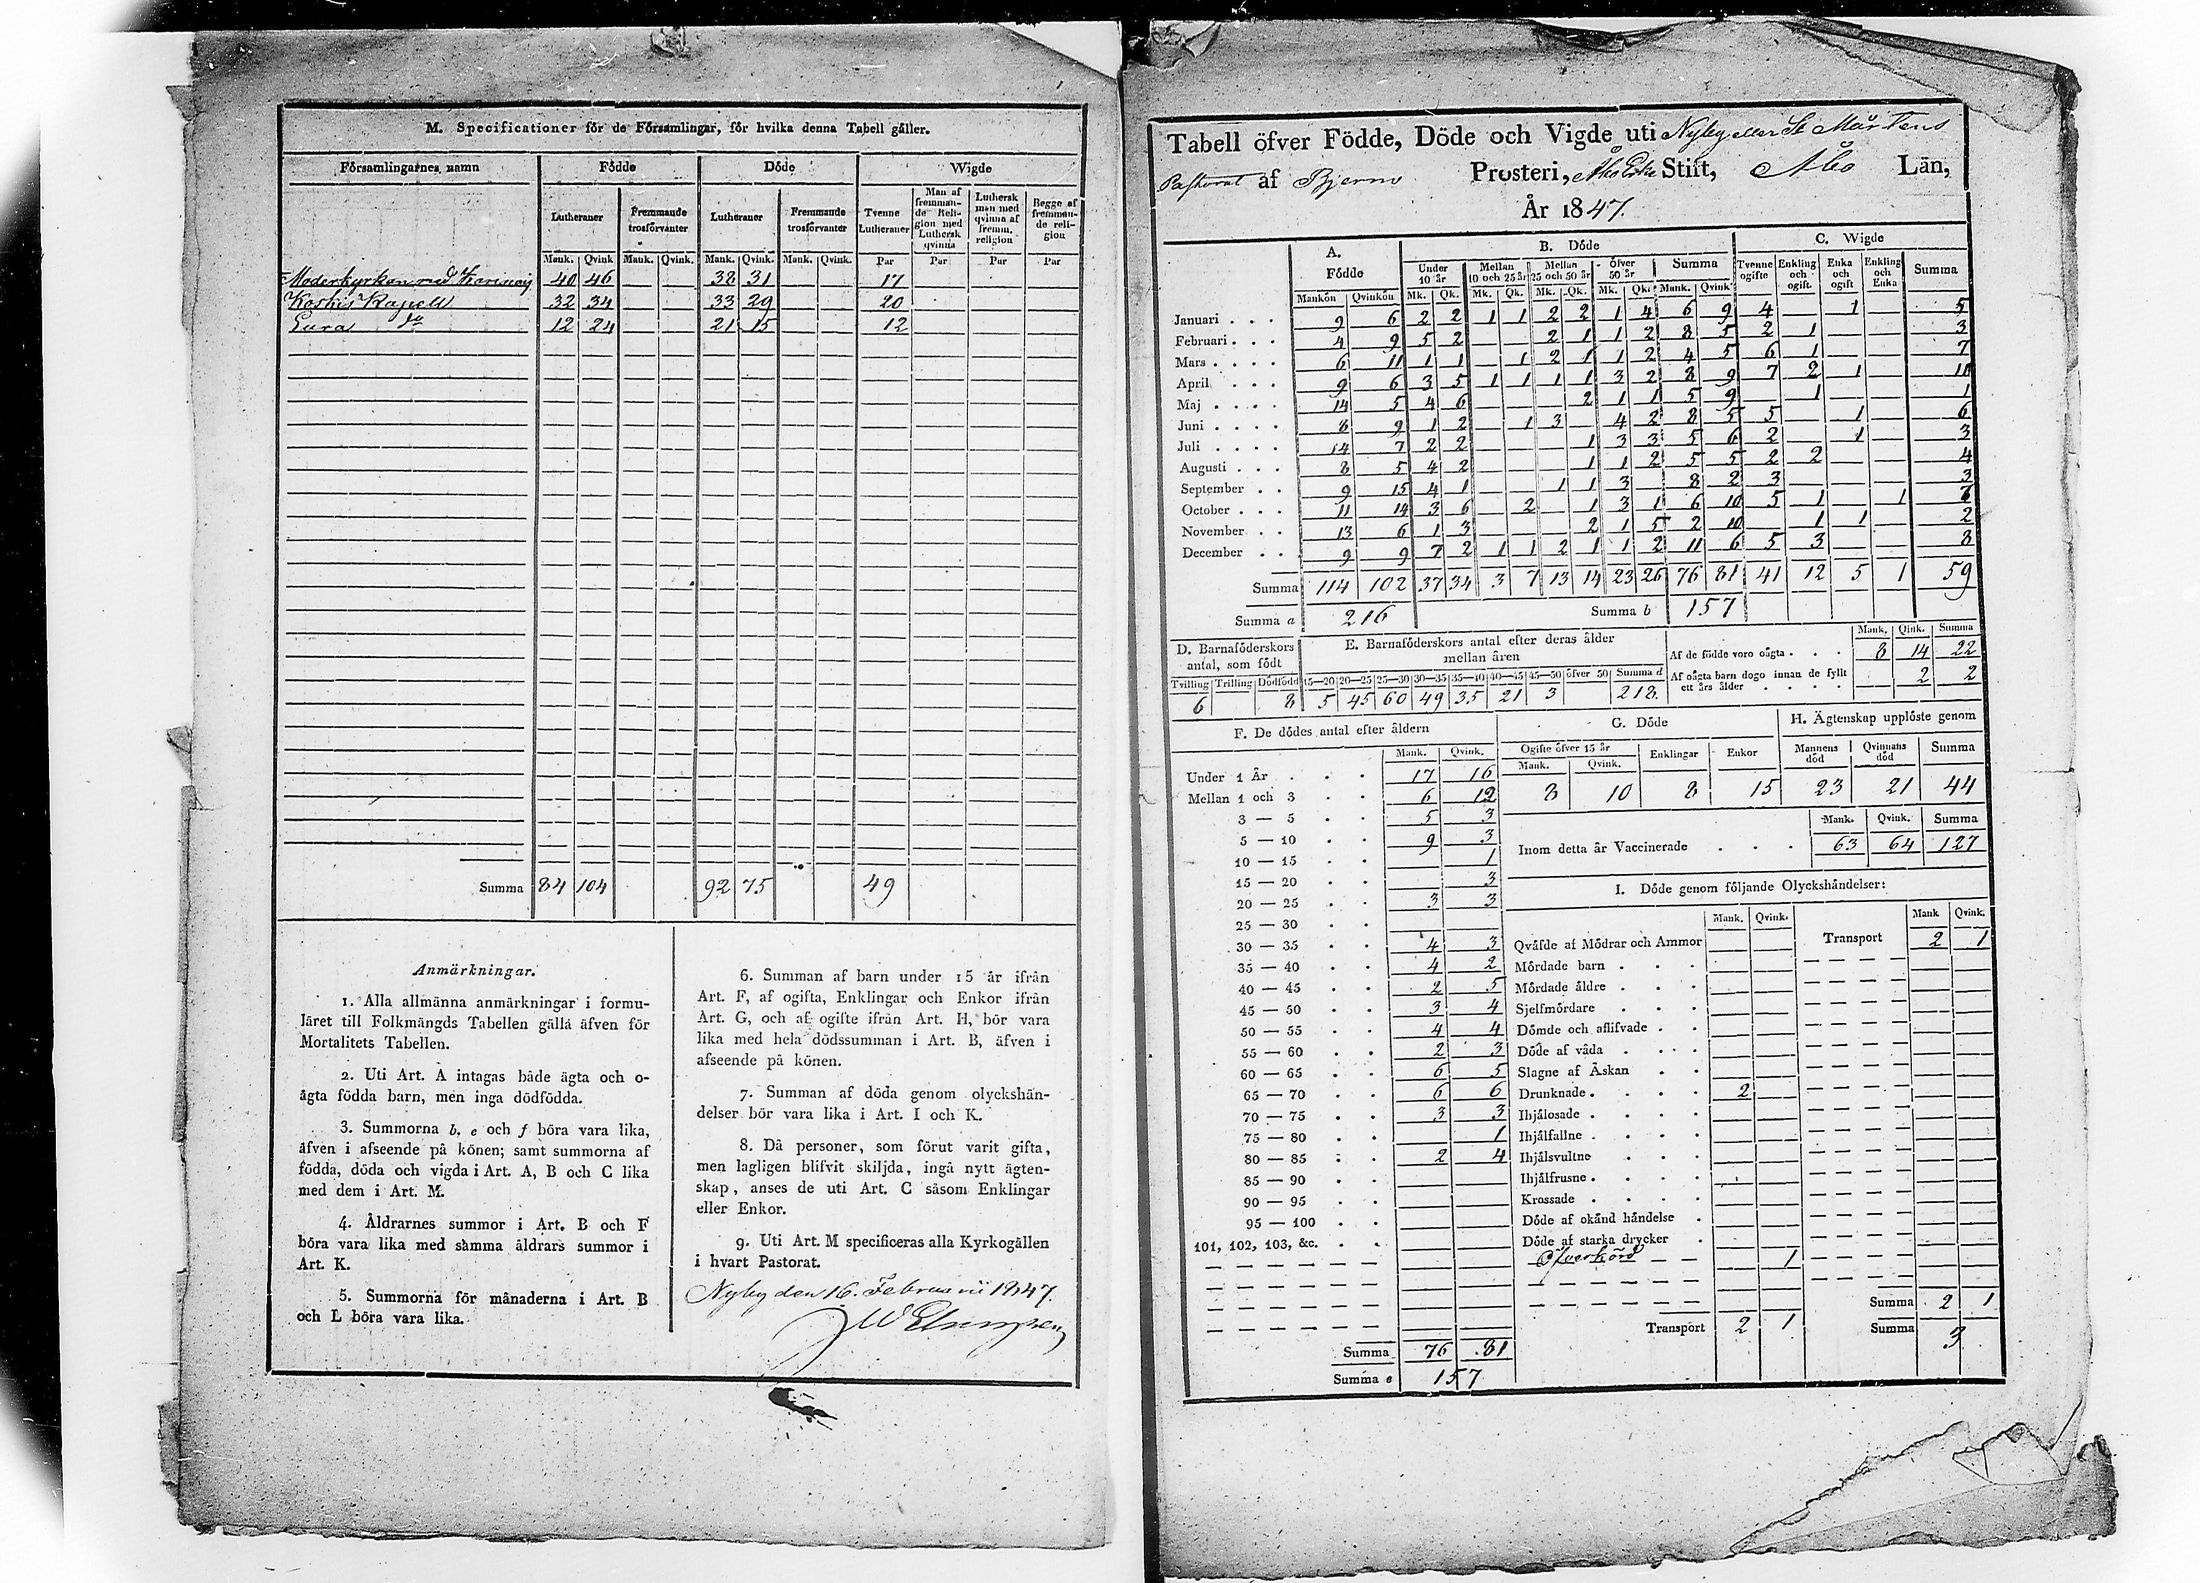 M. Specificationer för de Församlingar, för hvilka denna Tabell gäller.
Församlingarnes namn | Födde | Döde | Wigde
Lutheraner | Fremmande trosförvanter | Lutheraner | Fremmande trosförvanter | Tvenne Lutheraner | Man af fremmande Religion med Luthersk qvinna | Luthersk man med qvinna af fremm. religion | Begge af fremmande religion
Mank. Qvink Mank. Qvink. Mank. Qvink. Mank. Qvink. Par Par Par Par
Moderkyrkan med Karinais 40 46 38 31 17
Koskis Kapell 32 34 33 29 20
Eura do 12 24 21 15 12
Summa 84 104 92 75 49
Anmärkningar.
1. Alla allmänna anmärkningar i formu-
läret till Folkmängds Tabellen gälla äfven för
Mortalitets Tabellen.
2. Uti Art. A intagas både ägta och o-
ägta födda barn, men inga dödfödda.
3. Summorna b, e och f böra vara lika,
äfven i afseende på könen; samt summorna af
födda, döda och vigda i Art. A, B och C lika
med dem i Art. M.
4. Åldrarnes summor i Art. B och F
böra vara lika med samma åldrars summor i
Art. K.
5. Summorna för månaderna i Art. B
och L böra vara lika.
6. Summan af barn under 15 år ifrån
Art. F, af ogifta, Enklingar och Enkor ifrån
Art. G, och af ogifte ifrån Art. H, bör vara
lika med hela dödssumman i Art. B, äfven i
afseende på könen.
7. Summan af döda genom olyckshän-
delser bör vara lika i Art. I och K.
8. Då personer, som förut varit gifta,
men lagligen blifvit skiljda, ingå nytt ägten-
skap, anses de uti Art. C såsom Enklingar
eller Enkor.
9. Uti Art. M specificeras alla Kyrkogällen
i hvart Pastorat.
Nyby den 16. Februarii 1847.
Tabell öfver Födde, Döde och Vigde uti Nyby eller St Mårtens
Pastorat af Bjerno Prosteri, Åbo Erke Stift, Åbo Län,
År 1847.
A. Födde | B. Döde | C. Wigde
Under 10 år | Mellan 10 och 25 år | Mellan 25 och 50 år | Öfver 50 år | Summa | Tvenne ogifte | Enkling och ogift | Enka och ogift | Enkling och Enka | Summa
Mankön Qvinkön Mk. Qk. Mk. Qk. Mk. Qk. Mk. Qk. Mank. Qvink
Januari . . . 9 6 2 2 1 1 2 2 1 4 6 9 4 1 5
Februari . . . 4 9 5 2 2 1 1 2 8 5 2 1 3
Mars . . . . 6 11 1 1 1 2 1 1 2 4 5 6 1 7
April . . . 9 6 3 5 1 1 1 1 3 2 8 9 7 2 1 10
Maj . . . . 14 5 4 6 2 1 1 5 9 1 1
Juni . . . . 8 9 1 2 1 3 4 2 8 5 5 1 6
Juli . . . . 14 7 2 2 1 3 3 5 6 2 1 3
Augusti . . . 8 5 4 2 1 1 2 5 5 2 2 4
September . . 9 15 4 1 1 1 3 8 2 3 3
October . . . 11 14 3 6 2 1 3 1 6 10 5 1 1 7
November . . 13 6 1 3 2 1 5 2 10 1 1 2
December . . 9 9 7 2 1 1 2 1 1 2 11 6 5 3 8
Summa 114 102 37 34 3 7 13 14 23 26 76 81 41 12 5 1 59
Summa a 216 Summa b 157
D. Barnaföderskors antal, som födt
Tvilling Trilling Dödfödd
6 8
E. Barnaföderskors antal efter deras ålder mellan åren
15—20 20—25 25—30 30—35 35—40 40—45 45—50 öfver 50 Summa d
5 45 60 49 35 21 3 218.
Mank. Qink. Summa
Af de födde voro oägta . . . 8 14 22
Af oägta barn dogo innan de fyllt ett års ålder . . . . 2 2
F. De dödes antal efter åldern
Mank. Qvink.
Under 1 År . . . 17 16
Mellan 1 och 3 . . 6 12
3 — 5 . . 5 3
5 — 10 . . 9 3
10 — 15 . . 1
15 — 20 . . 3
20 — 25 . . 3 3
25 — 30 . .
30 — 35 . . 4 3
35 — 40 . . 4 2
40 — 45 . . 2 5
45 — 50 . . 3 4
50 — 55 . . 4 4
55 — 60 . . 2 3
60 — 65 . . 6 5
65 — 70 . . 6 6
70 — 75 . . 3 3
75 — 80 . . 1
80 — 85 . . 2 4
85 — 90 . .
90 — 95 . .
95 — 100 . .
101, 102, 103, &c. . .
Summa 76 81
Summa e 157
G. Döde
Ogifte öfver 15 år | Enklingar | Enkor
Mank. Qvink.
8 10 8 15
H. Ägtenskap upplöste genom
Mannens död | Qvinnans död | Summa
23 21 44
Mank. Qvink. Summa
Inom detta år Vaccinerade . . . 63 64 127
I. Döde genom följande Olyckshändelser:
Mank. Qvink. Mank Qvink.
Qväfde af Mödrar och Ammor Transport 2 1
Mördade barn . . .
Mördade äldre . . .
Sjelfmördare . . .
Dömde och aflifvade . .
Döde af våda . . . .
Slagne af Åskan . .
Drunknade . . . . 2
Ihjälosade . . . .
Ihjälfallne . . . .
Ihjälsvultne . . .
Ihjälfrusne . . . .
Krossade . . . .
Döde af okänd händelse .
Döde af starka drycker .
Öfverkörd 1
Summa 2 1
Transport 2 1 Summa 3